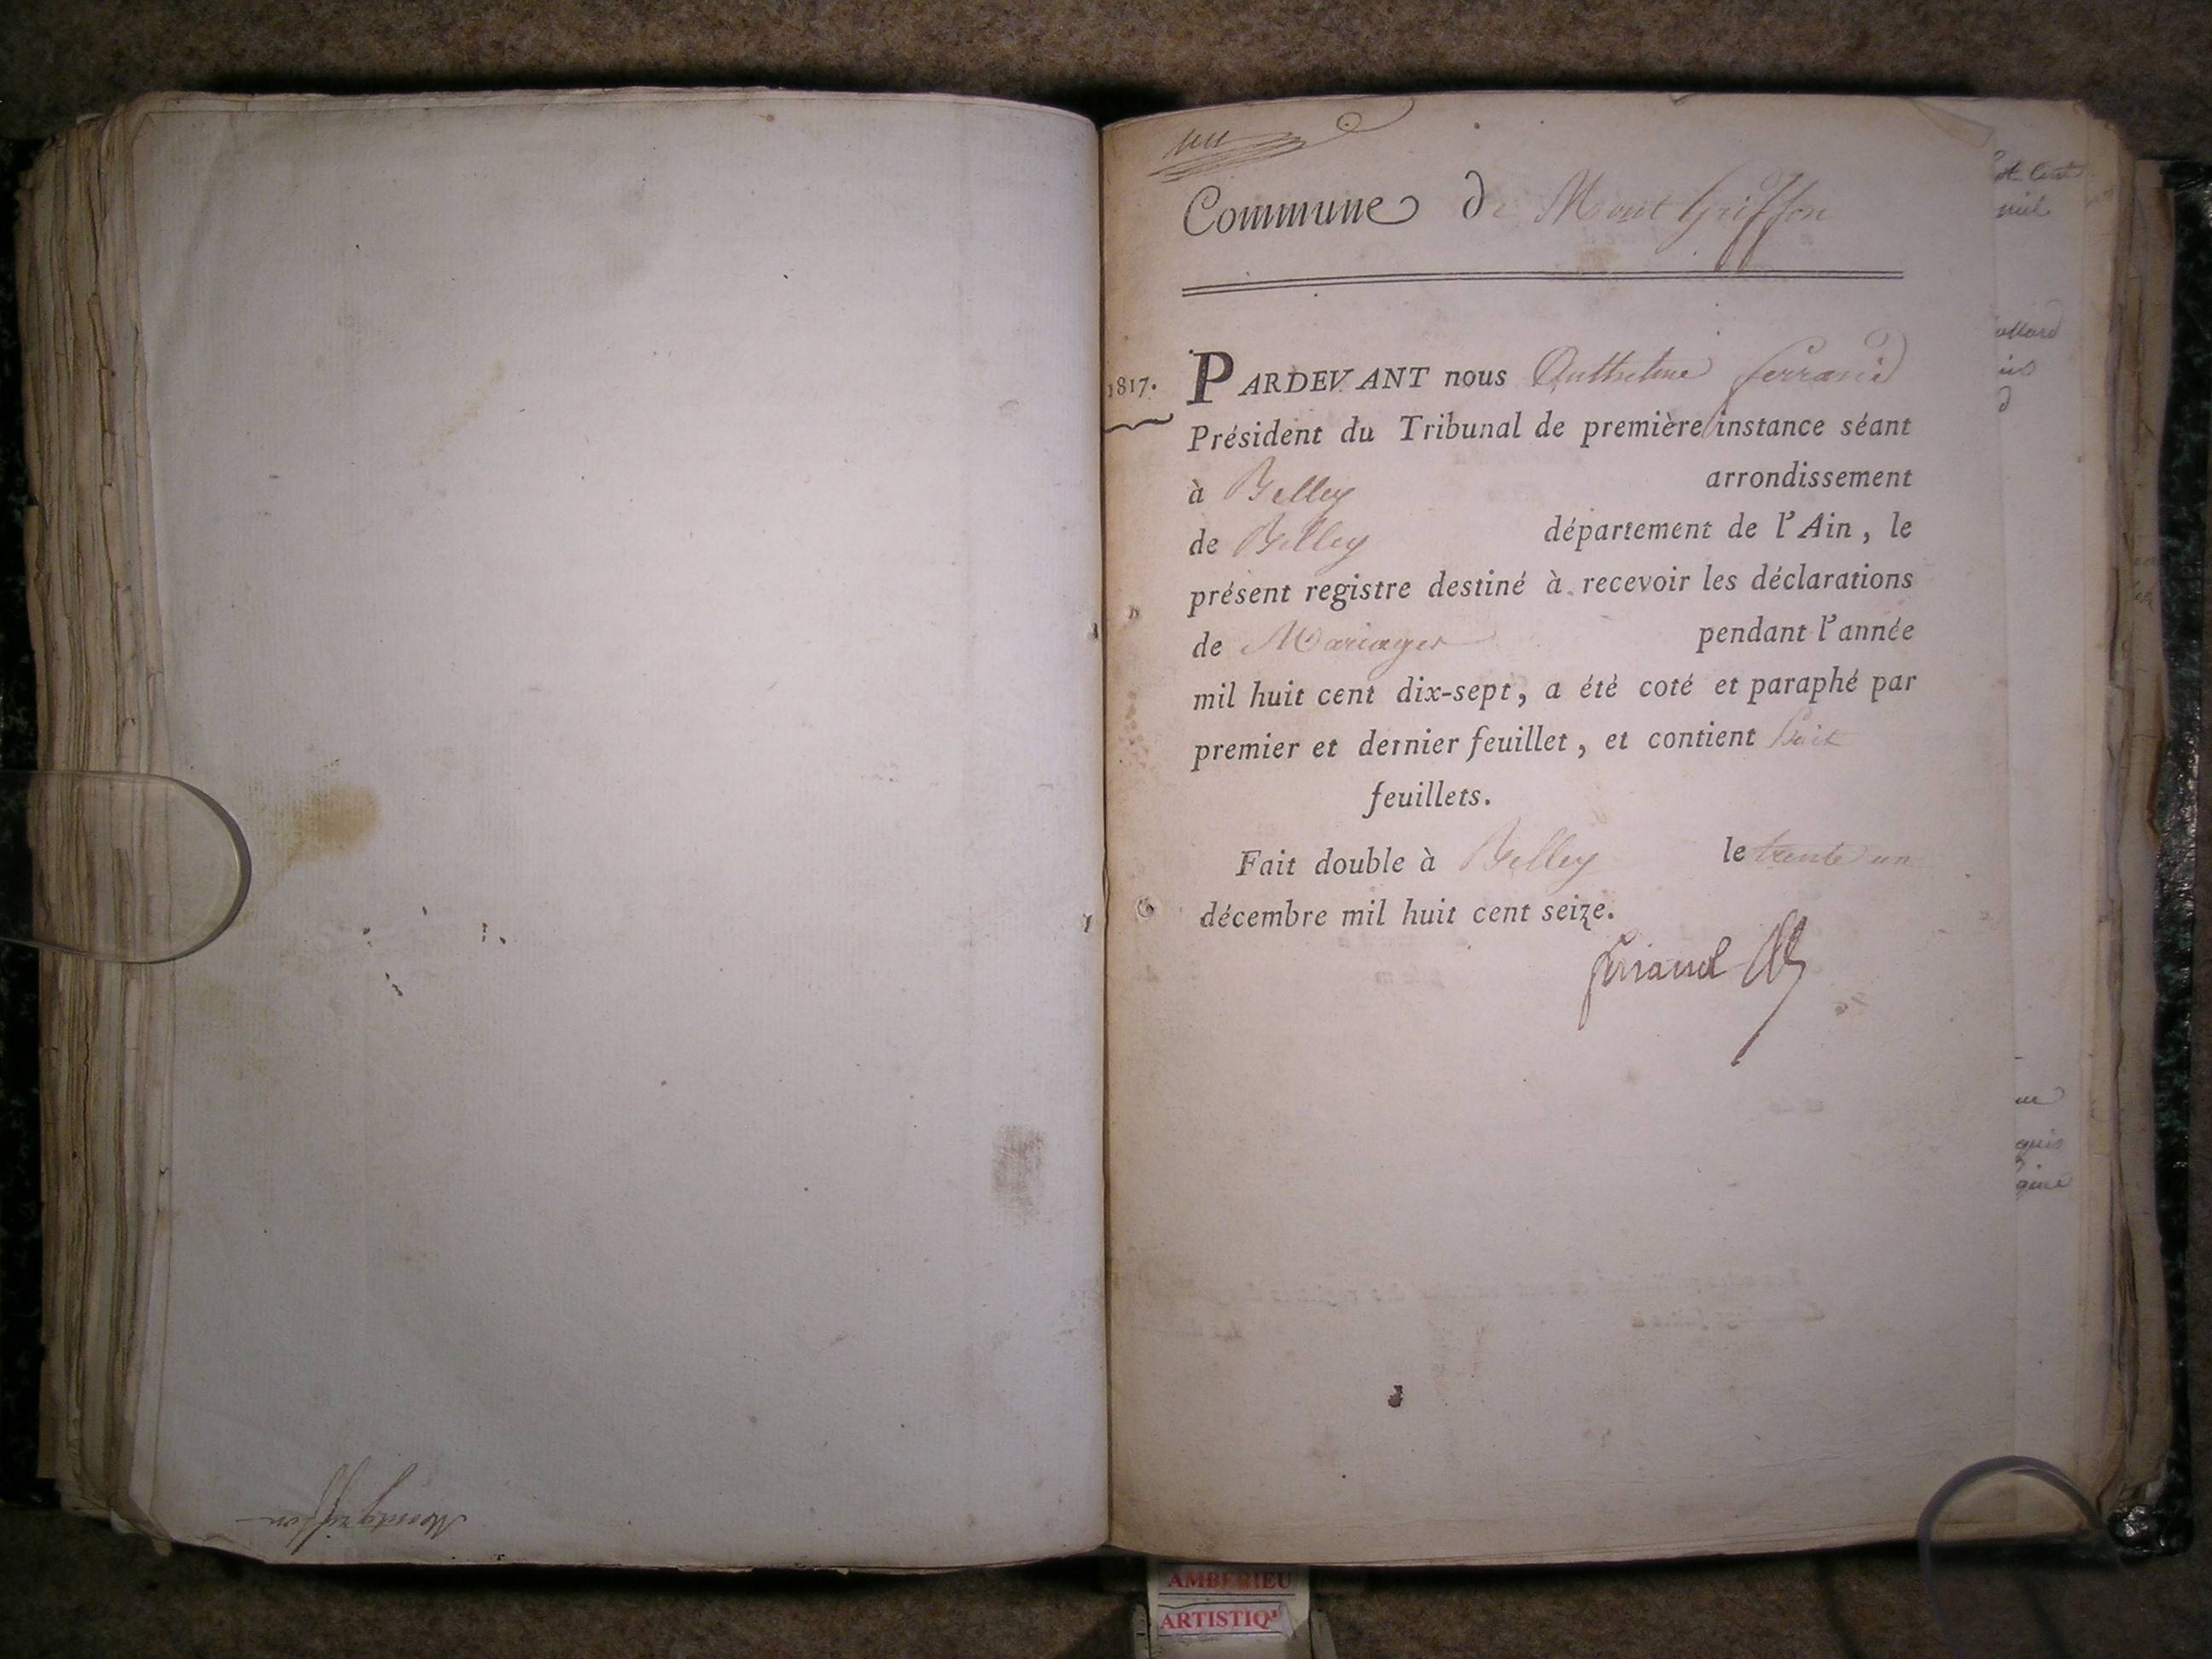 Montgriffon
Commune de Mont Griffon
1817.
PARDEVANT nous Anthelme ferrand
Président du Tribunal de première instance séant
à Belley arrondissement
de Belley département de l'Ain, le
présent registre destiné à recevoir les déclarations
de Mariages pendant l'année
mil huit cent dix-sept, a été coté et paraphé par
premier et dernier feuillet, et contient huit
feuillets.
Fait double à Belley le trente un
décembre mil huit cent seize.
ferrand
AMBERIEU
ARTISTIQ